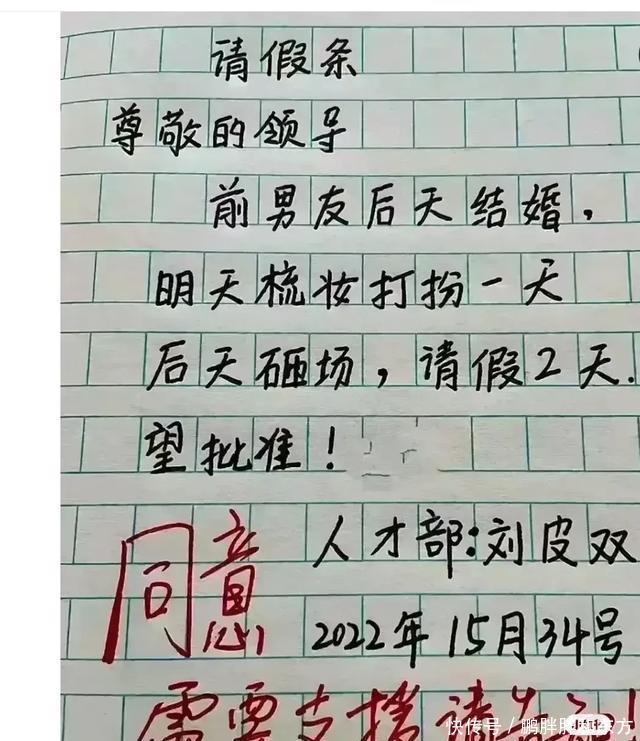 请假条
尊敬的领导
前男友后天结婚，
明天梳妆打扮一天
后天砸场，请假2天.
望批准！
人才部:刘皮双
同意
2022年15月34号
需要支援请
快传号／鹏胖胖
东方